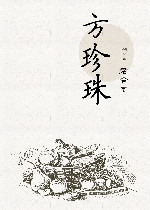 方珍珠
老舍